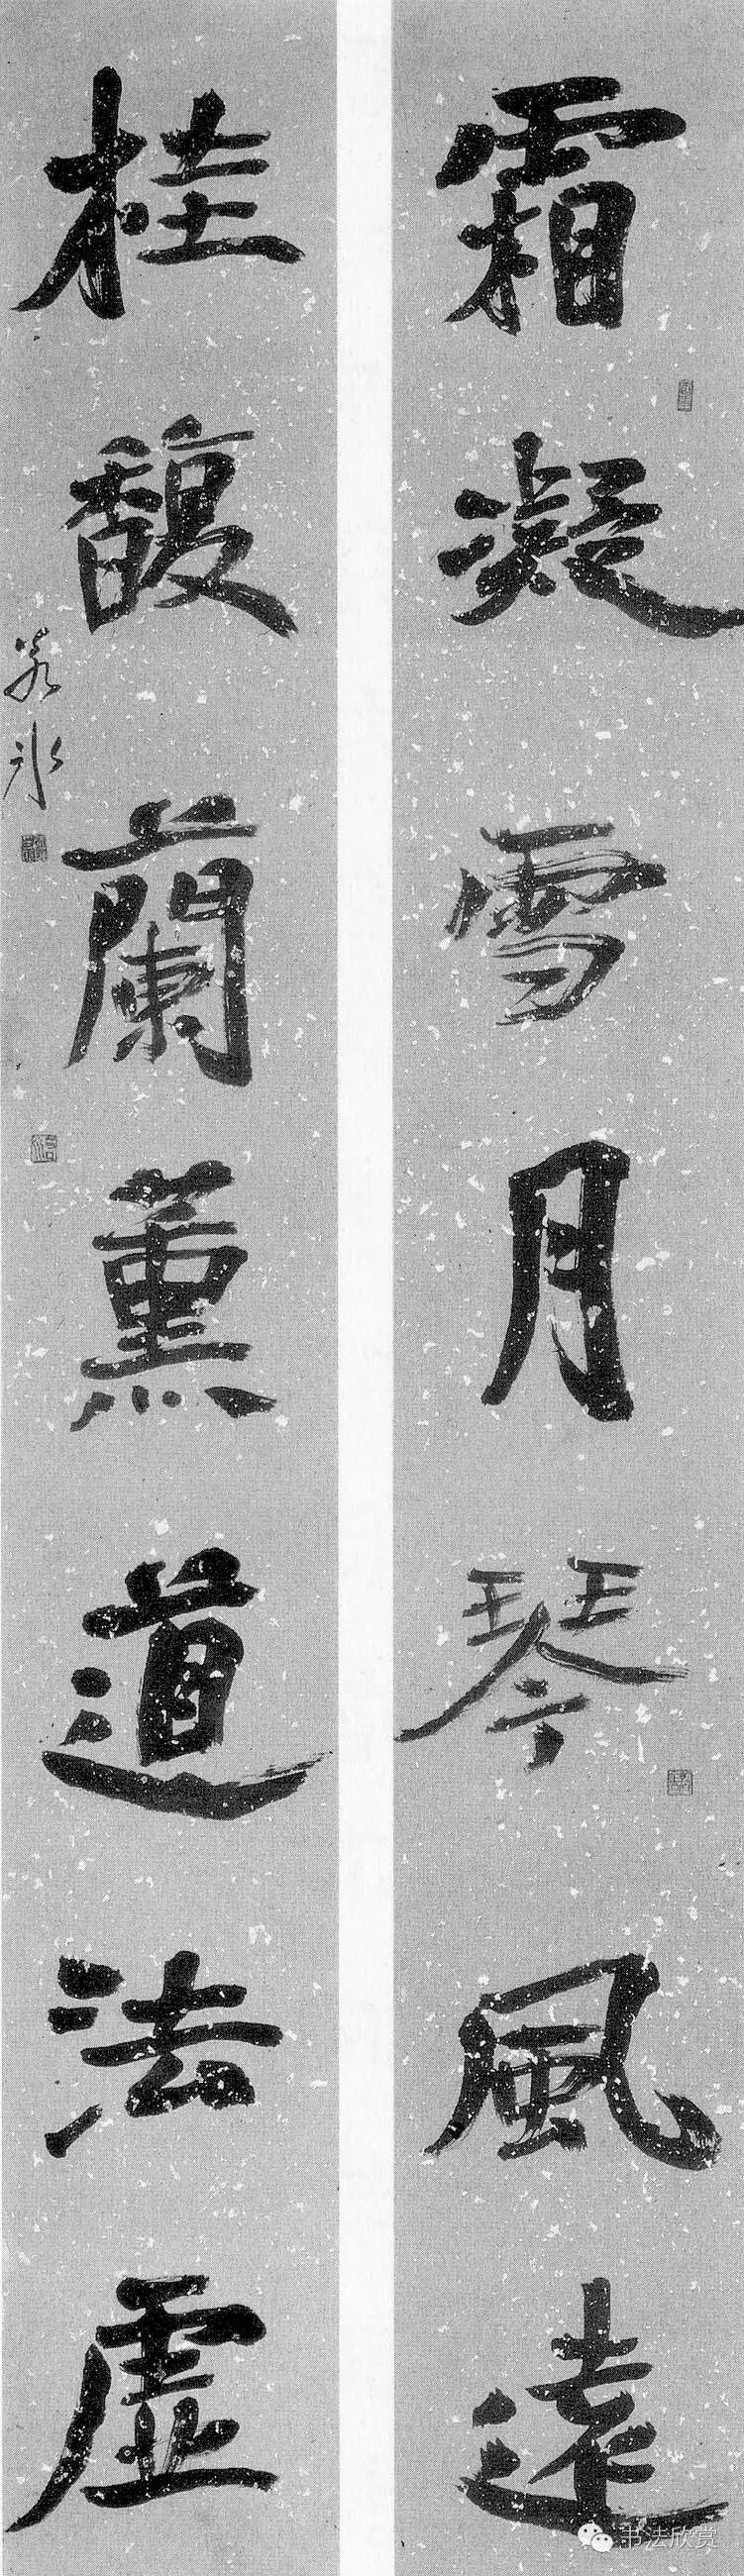 霜凝雪月琴風遠
桂馥蘭薰道法虛
若水
书法欣赏